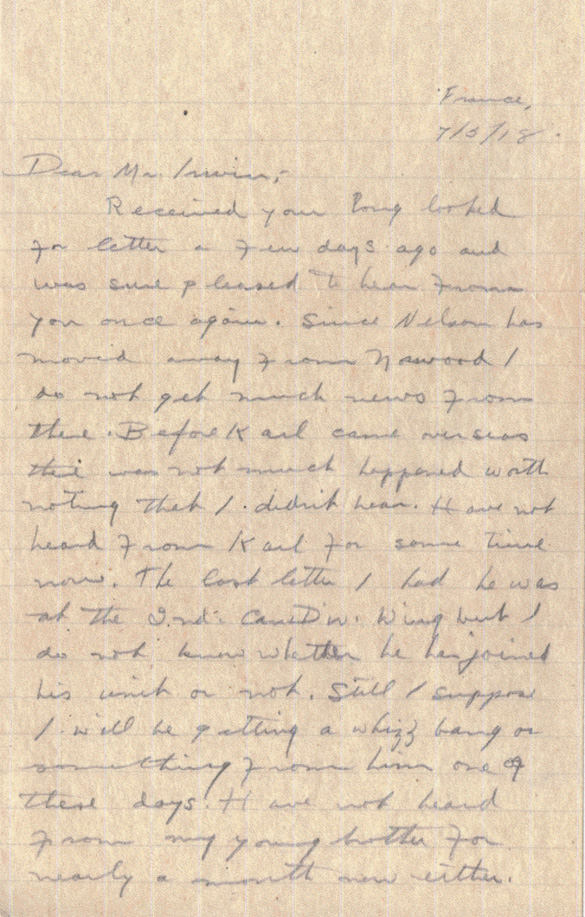 France,
7/3/18.
Dear Mr. Irwin;-
Received your long looked
for letter a few days ago and
was sure pleased to hear from
you once again. Since Nelson has
moved away from Norwood I
do not get much news from
there. Before Karl came overseas
there was not much happened worth
noting that I didn't hear. Have not
heard from Karl for some time
now. The last letter I had he was
at the 2nd. Can. Div. Wing but I
do not know whether he has joined
his unit or not. Still I suppose
I will be getting a whizz bang or
something from him one of
these days. Have not heard
from my young brother for
nearly a month now either.